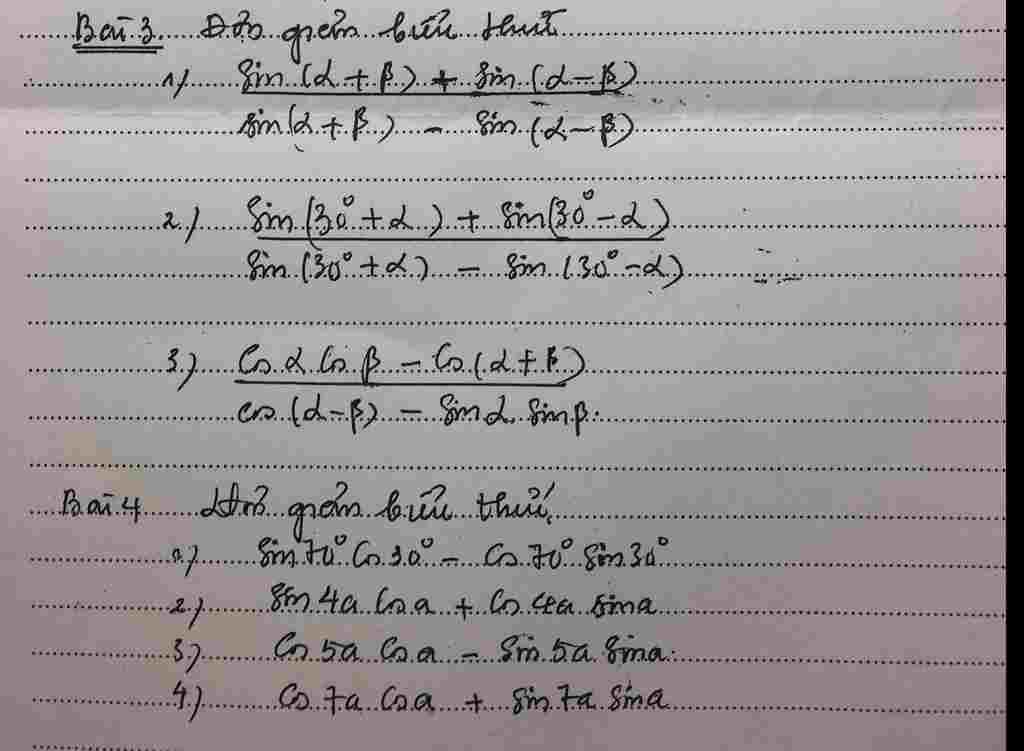 Bài 3. Đơn giản biểu thức
1) sin (α + β) + sin (α - β)
sin (α + β) - sin (α - β)
2.) sin (30° + α) + sin (30° - α)
sin (30° + α) - sin (30° - α)
3.) Cos α Cos β - Cos (α + β)
cos (α - β) - sin α sin β.
Bài 4 Đơn giản biểu thức.
1.) sin 70° Cos 30° - Cos 70° sin 30°
2.) sin 4a Cos a + Cos 4a sin a
3.) Cos 5a Cos a - sin 5a sin a.
4.) Cos 7a Cos a + sin 7a sin a